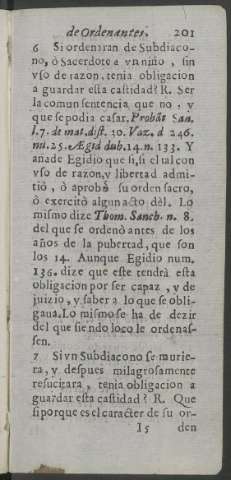 de Ordenantes. 201
6 Si ordenaran de Subdiaco-
no, ò Sacerdote a vn niño , sin
vso de razon, tenia obligacion
a guardar esta castidad? R. Ser
la comun sentencia que no , y
que se podia casar. Probàt San.
l.7. de mat. dist. 30. Vaz. d 246.
nu. 25. Ægid dub. 14. n. 133. Y
añade Egidio que si, si el tal con
vso de razon, y libertad admi-
tiò , ò aprobò su orden sacro,
ò exercitò algun acto dèl. Lo
mismo dize Thom. Sanch. n. 8.
del que se ordenò antes de los
años de la pubertad, que son
los 14. Aunque Egidio num.
136. dize que este tendrà esta
obligacion por ser capaz , y de
juizio, y saber a lo que se obli-
gaua. Lo mismo se ha de dezir
del que siendo loco le ordenas-
sen.
7 Si vn Subdiacono se murie-
ra, y despues milagrosamente
resucitara , tenia obligacion a
guardar esta castidad? R. Que
si porque es el caracter de su or-
I5 den